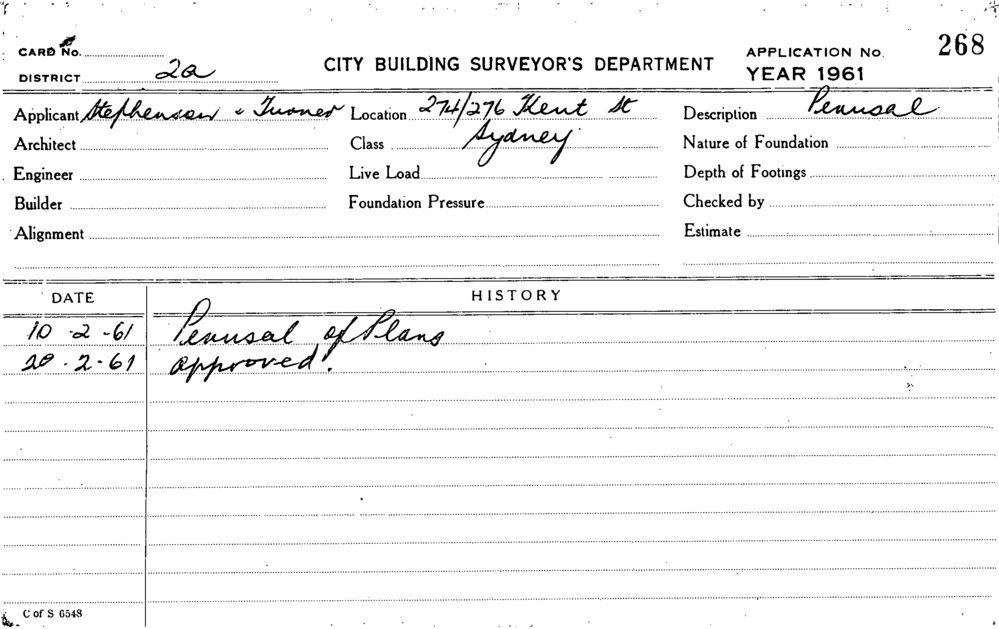 CARD No.
DISTRICT 2a
CITY BUILDING SURVEYOR'S DEPARTMENT
APPLICATION No. 268
YEAR 1961
Applicant Stephenson & Turner Location 274/276 Kent St Description Perusal
Architect Class Sydney Nature of Foundation
Engineer Live Load Depth of Footings
Builder Foundation Pressure Checked by
Alignment Estimate
DATE HISTORY
10-2-61 Perusal of Plans
20.2-61 approved.
C of S 6548